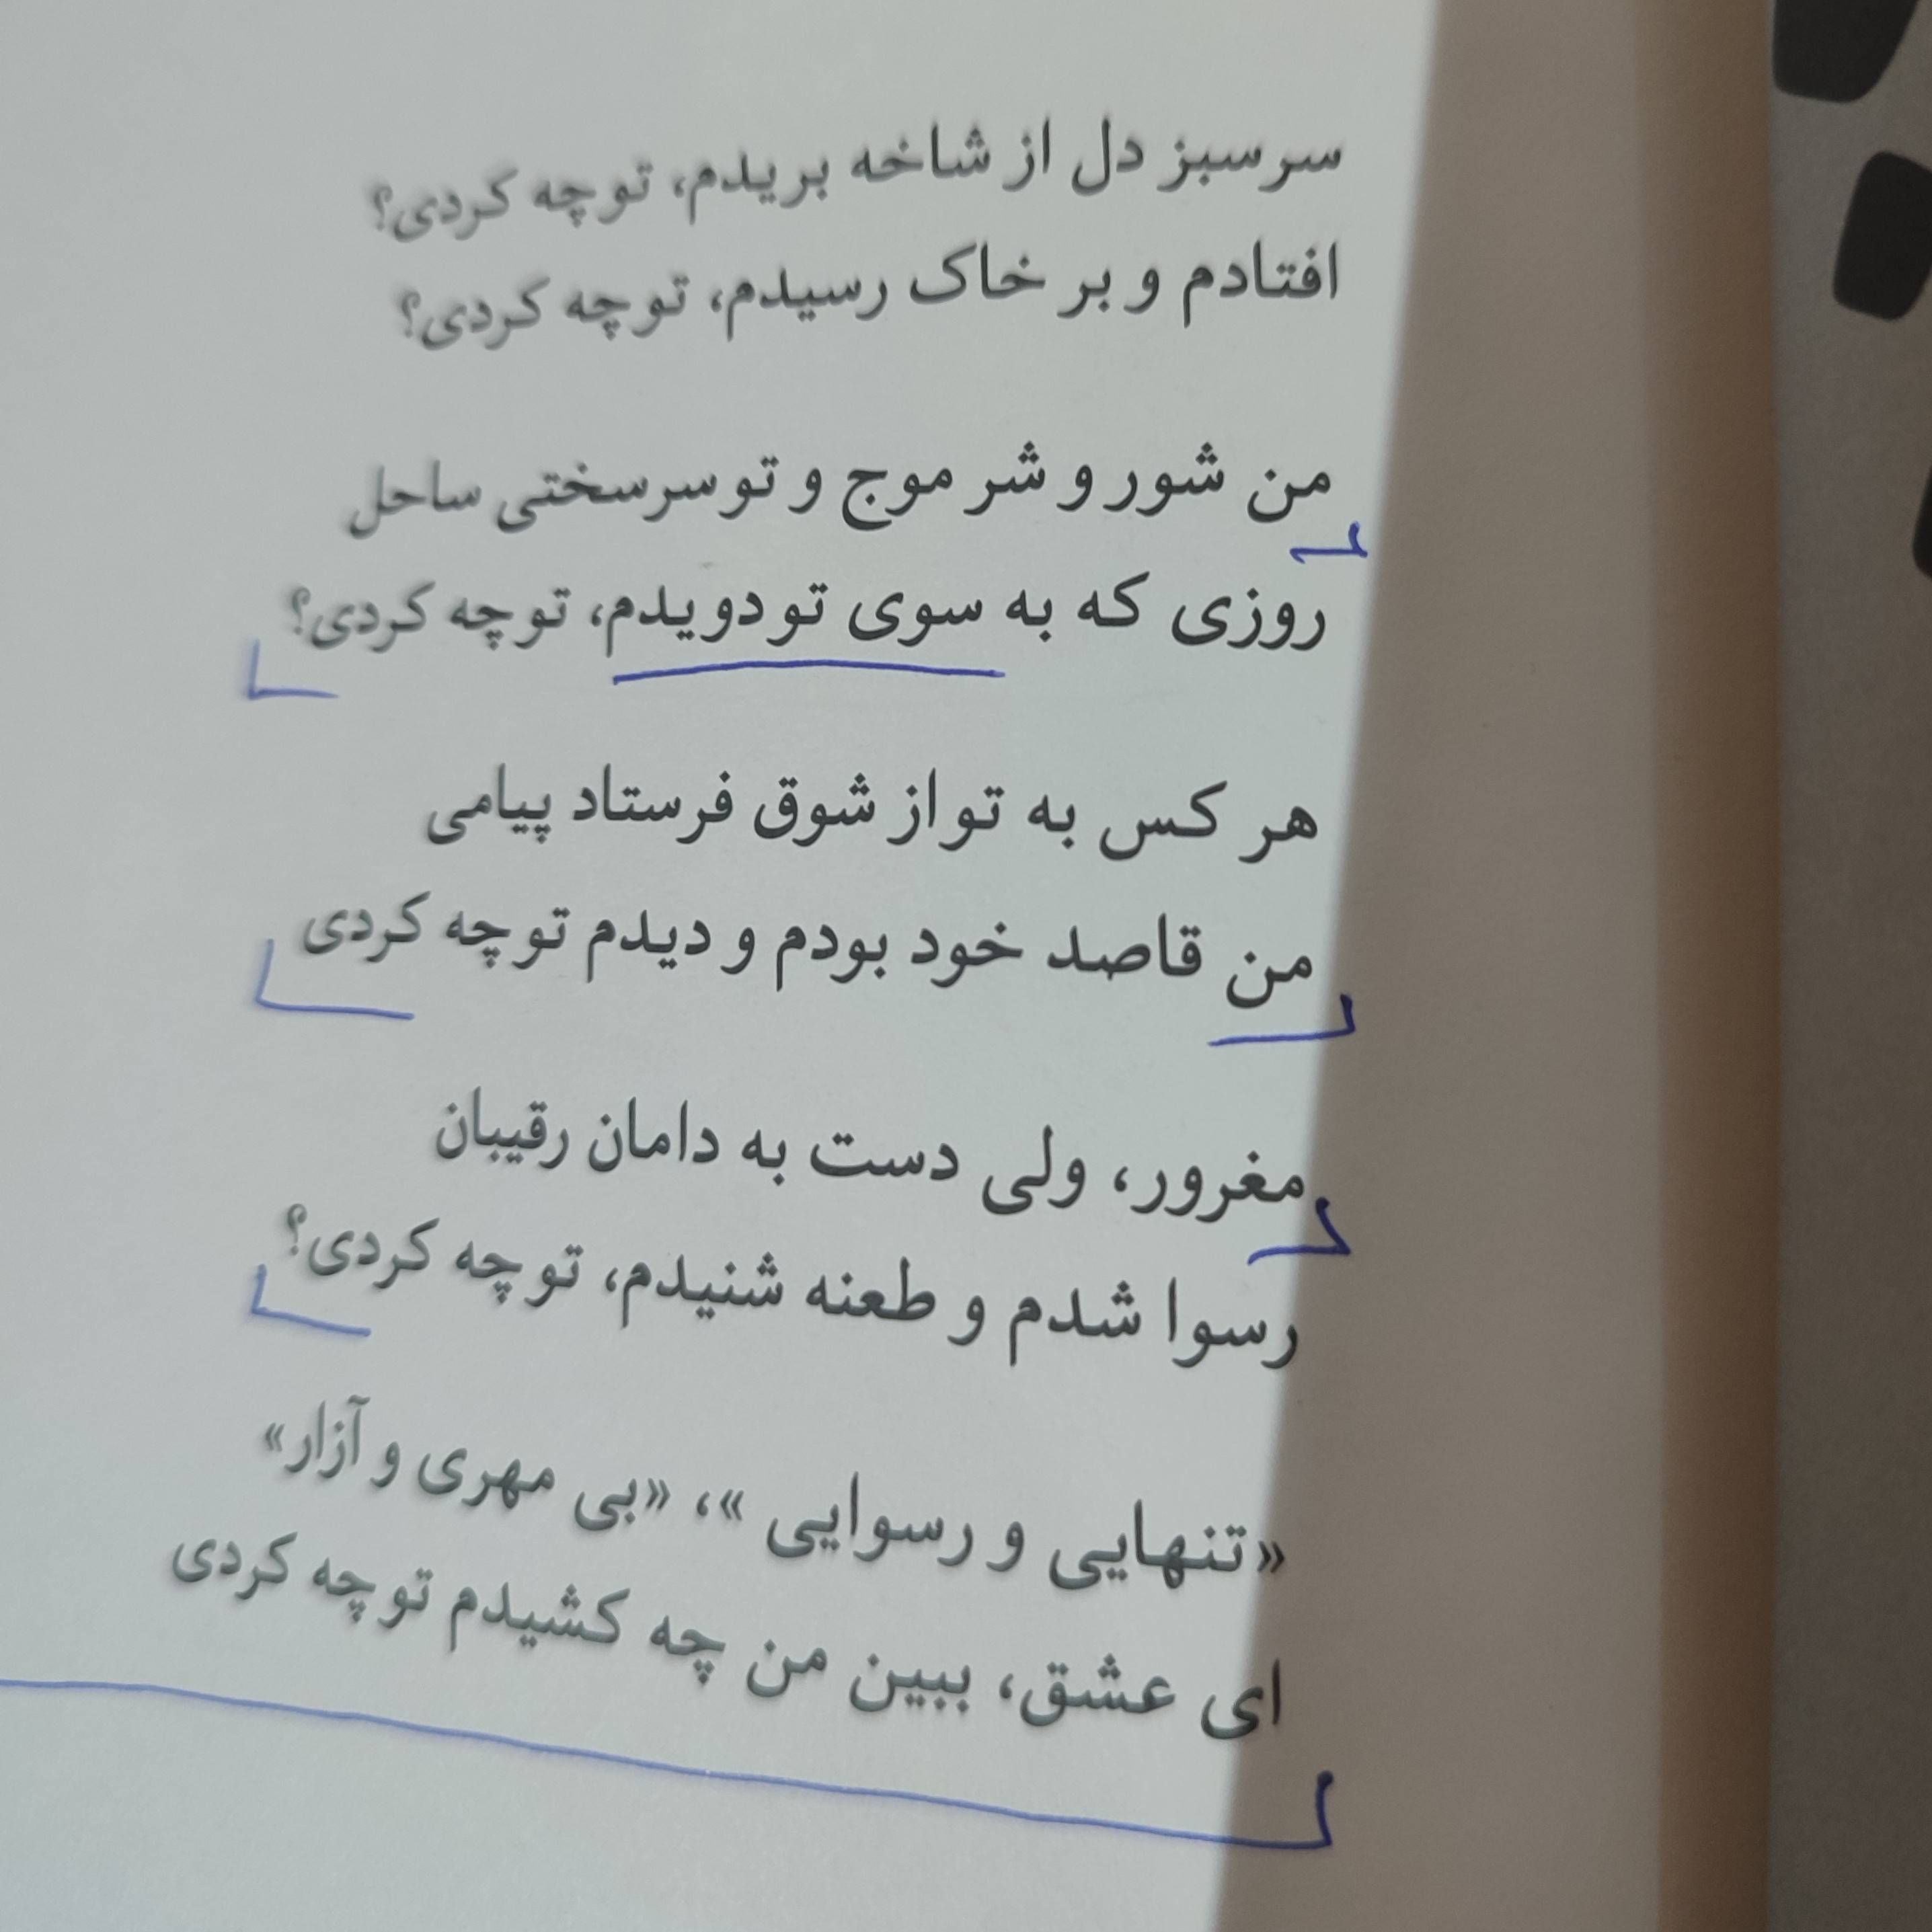 سرسبز دل از شاخه بریدم، تو چه کردی؟
افتادم و بر خاک رسیدم، تو چه کردی؟
من شور و شر موج و تو سرسختی ساحل
روزی که به سوی تو دویدم، تو چه کردی؟
هر کس به تو از شوق فرستاد پیامی
من قاصد خود بودم و دیدم تو چه کردی
مغرور، ولی دست به دامان رقیبان
رسوا شدم و طعنه شنیدم، تو چه کردی؟
«تنهایی و رسوایی »، «بی مهری و آزار»
ای عشق، ببین من چه کشیدم تو چه کردی